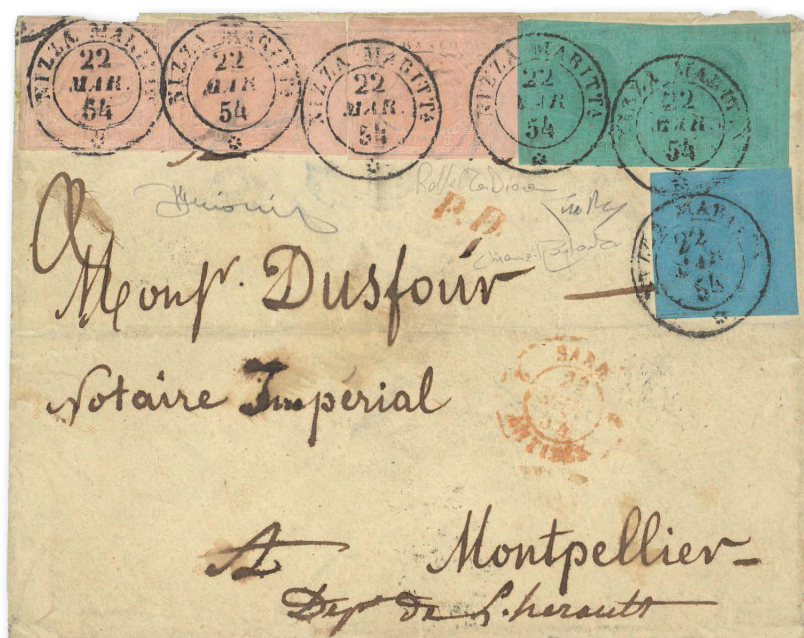 NIZZA MARITTA 22 MAR. 54
NIZZA MARITTA 22 MAR. 54
NIZZA MARITTA 22 MAR. 54
NIZZA MARITTA 22 MAR 54
NIZZA MARITTA 22 MAR. 54
P.D.
NIZZA MARITTA 22 MAR 54
A
Monsr. Dusfour
Notaire Impérial
SARD.
ANTIBES
A Montpellier
Dept de L'herault